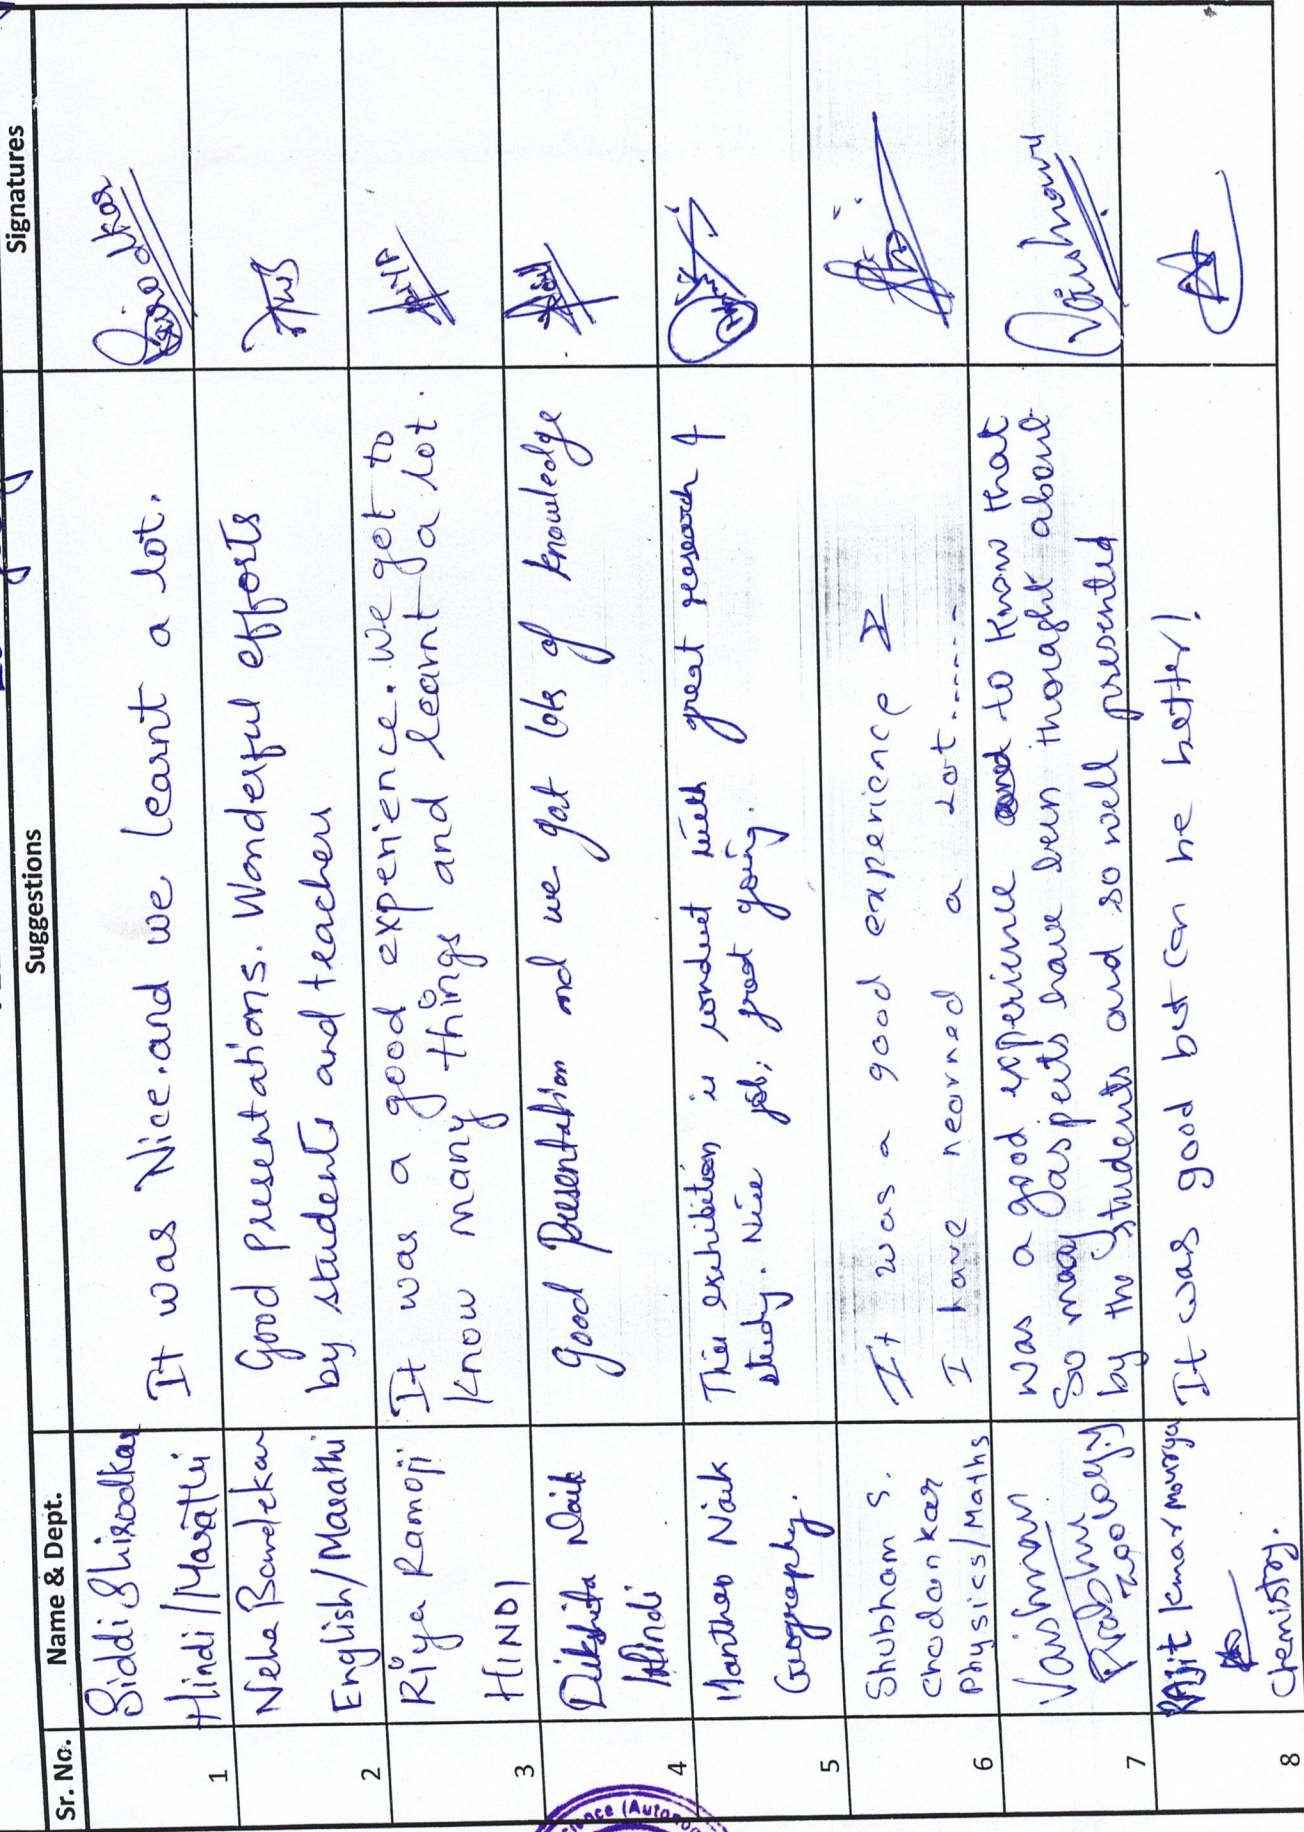 Sr. No. Name & Dept. Suggestions Signatures
1 Siddi Shirodkar
Hindi/Marathi
It was Nice. and we learnt a lot.
2 Neha Bandekar
English/Marathi
Good Presentations. Wonderful efforts
by students and teachers
3 Riya Ramoji
HINDI
It was a good experience. we get to
know many things and learnt a lot.
4 Dikshita Naik
Hindi
Good Presentation and we got lots of knowledge
5 Manthan Naik
Geography.
This exhibition is conduct with great research &
study. Nice job, great going.
6 Shubham S.
Chodankar
Physics/Maths
It was a good experience &
I have nearned a Lot.....
7 Vaishnavi
Prabhu
Zoology
was a good experience and to know that
So many aspects have been thought about
by the students and so well presented
Vaishnavi
8 RAjit Kumar Mourya
Chemistry.
It was good but can be better!
ience (Autono